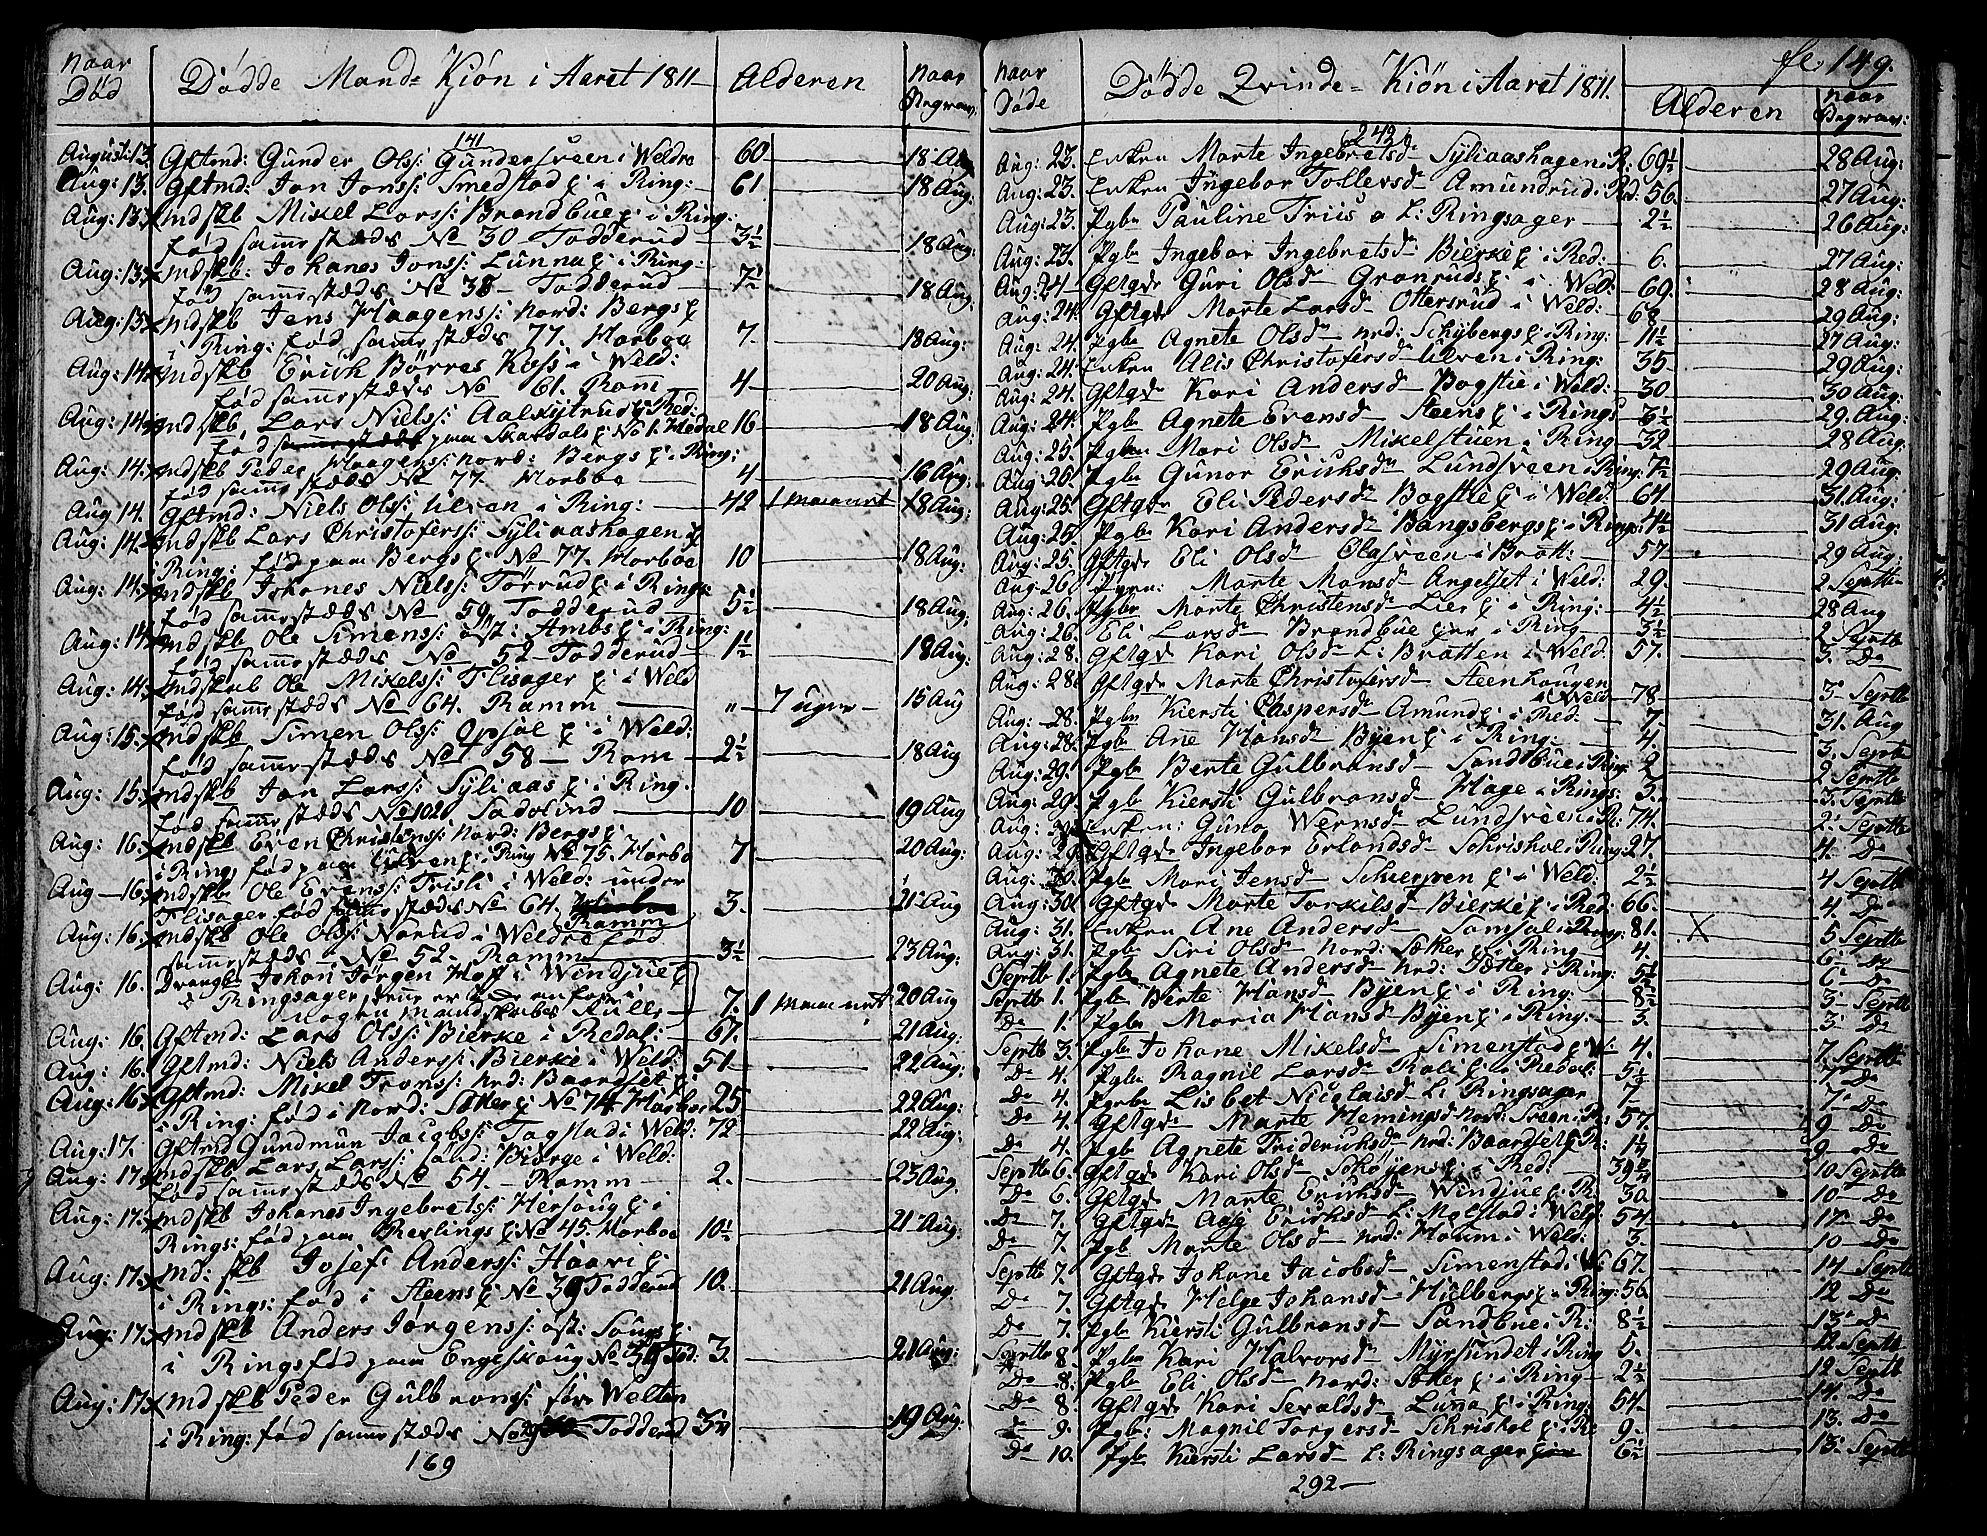 naar
Død
Dødde Mand- Kiøn i Aaret 1811
Alderen
naar
Begrav:
141
August: 13. Gftmd: Gunder Olss: Gundersveen i Weldre 60 18 Aug
Aug: 13. Gftmd: Jon Jonss: Smedstad i Ring: 61 18 Aug:
Aug: 13. mdskb Mikel Larss: Brandbue i Ring:
fød samestæds No 30 Todderud 3½ 18 Aug:
Aug: 13. mdskb: Johanes Jonss: Lunna i Ring:
fød samestæds No 38 Todderud 7½ 18 Aug:
Aug: 13. mdskb Jens Haagenss: nord: Bergs
i Ring: fød samestæds 77. Morboe 7. 18 Aug:
Aug: 14. mdskb Erich Børres Koss i Weld:
fød samestæds No 61. Ram 4 20 Aug:
Aug: 14. mdskb Lars Nielss: Aalskytrud Red:
fød paa Skardals No 1. Hedal 16 18 Aug:
Aug: 14. mdskb Peder Haagenss: nord: Bergs i Ring:
fød samestæds No 77 Morboe 4 16 Aug:
Aug 14. Gftmd: Niels Olss: Ulven i Ring: 42 1 maanet 18 Aug:
Aug: 14. mdskb Lars Christoferss: Syliaashagen
i Ring: fød paa Bergs No 77. Morboe 10 18 Aug:
Aug: 14. mdskb Johanes Nielss: Torrud i Ring:
fød samestæds No 59 Todderud 5½ 18 Aug:
Aug: 14. mdskb Ole Simenss: øst: Ambs i Ring:
fød samestæds No 52 Todderud 1½ 18 Aug:
Aug: 14. mdskab Ole Mikelss: Flisager i Weld
fød samestæds No 64. Ramm " 7 uger 15 Aug
Aug: 15. mdskb Simen Olss: Opsal i Weld:
fød samestæds No 58 Ram 2½ 18 Aug
Aug: 15. mdskb Jon Larss: Syliaas i Ring.
fød samestæds No 102 Sadolind 10 19 Aug
Aug: 16. mdskb Even Christenss: nord: Bergs
i Ring: fød paa Ulven i Ring No 75. Morboe 7 20 Aug:
Aug 16. mdskb Ole Evenss: Trisli i Weld: under
Flisager fød samestæds No 64. Ramm 3. 21 Aug
Aug: 16. mdskb Ole Olss: Norud i Weldre fød
samestæds No 52 Ramm 3½ 23 Aug:
Aug: 16. Drenge Johan Jørgen Hoff i Windjue
i Ringsager
nogen mandskabes Rulle 7. 1 maanet 20 Aug
Aug: 16. Gftmd: Lars Olss: Bierke i Redal: 67. 21 Aug:
Aug: 16. Gftmd: Niels Anderss: Bierke i Weld: 51 22 Aug:
Aug: 16. Gftmd: Mikel Tronss: nrd: Baardset
i Ring: fød i nord: Saker No 74 Morboe 25 22 Aug:
Aug: 17. Gftmd Gundmun Jacobss: Tagstad i Weld: 72 22 Aug:
Aug: 17. mdskb Lars Larss: sønd: Biørge i Weld:
fød samestæds No 54. Ramm 2. 23 Aug.
Aug: 17. mdskb Johanes Ingebretss: Hersoug i
Rings: fød paa Revlings No 45. Morboe 10½ 21 Aug:
Aug: 17. md: skb Josef Anderss: Haave
i Rings: fød i Steens No 39 Todderud 10. 21 Aug
Aug: 17. mdskb Anders Jørgenss: øst: Soug
i Rings fød paa Engeskoug No 39 Tod: 3. 21 Aug:
Aug: 17. mdskb Peder Gulbrans: store Welten
i Ring: fød samestæds No Todderud 19 Aug.
169
naar
Døde
Dødde Qvinde- Kiøn i Aaret 1811.
Alderen
fl: 149.
naar
Begrav:
242
Aug: 23. Enken Marte Ingebretsd Syliaashagen R: 69½ 28 Aug:
Aug: 23. Enken Ingebor Tollersd Amundrud: Red: 56. 27 Aug:
Aug: 23. Pgbr Pauline Friis a L: Ringsager 2½ 26 Aug:
Aug: 23. Pgbr Ingebor Ingebretsd Bierke i Red: 6. 27 Aug:
Aug: 24 Gftqv Guri Olsd Gronruds i Weld: 69. 28 Aug:
Aug: 24. Gftqv Marte Larsd Ottersrud i Weld: 68. 29 Aug:
Aug: 24. Pgbr Agnete Olsd nrd: Schybergs i Ring: 11½ 27 Aug:
Aug: 24. Enken Alis Christofersd Ulven i Ring: 35 29 Aug:
Aug: 24. Gftqv Kari Andersd Bagstie i Weld: 30 30 Aug:
Aug: 24. Pgbr Agnete Evensd Steens i Rings 3½ 29 Aug:
Aug: 25. Pgbr Mari Olsd Mikelstuen i Ring 32 28 Aug:
Aug: 25. Pgbr Gunor Erichsd Lundsveen i Ring: 7½ 29 Aug:
Aug: 25. Gftqv Eli Pedersd Bagstie i Weld: 64. 31 Aug:
Aug: 25. Pgbr Kari Andersd Bangsbergs i Rings: 4½ 31 Aug:
Aug: 25. Gftqv Eli Olsd Olasveen i Brøtt: 57 29 Aug:
Aug: 26 Pgrn: Marte Monsd Angelset i Weld: 29. 2 Septb
Aug: 26. Pgbr Marte Christensd Lier i Ring: 4½ 28 Aug
Aug: 26. Eli Larsd Brandbue i Ring 3½ 2 Septb
Aug: 28. Gftqv Kari Olsd L: Bratten i Weld: 57. 3. Do
Aug: 28. Gftqv Marte Christofersd Steenhougen
i Weld 78 3 Septb
Aug: 28. Pgbr Kiersti Caspersd Amund i Red: 7. 31. Aug
Aug: 28. Pgbr Ane Hansd Byen i Ring: 4. 3 Septb
Aug: 29. Pgbr Berte Gulbransd Sandbue i Ring: 2. 2 Septb
Aug: 29. Pgbr Kiersti Gulbransd Hage i Rings: 3. 3. Septb
Aug: Enken: Guno Wernsd Lundsveen i R: 74 2. Septb
Aug: 29 Gftqv Ingebor Erlandsd Schriskol i Ring: 27. 4. Do
Aug: 30. Pgbr Mari Jensd Scherpen i Weld. 2½ 4 Septb
Aug: 30. Gftqv Marte Torkilsd Bierke i Red: 66. 4. Do
Aug: 31. Enken Ane Andersd Samsal i Ring: 81. X 5 Septb
Aug: 31. Pgbr Siri Olsd nord: Saker i Ring 4. 6 Do
Septb 1. Pgbr Agnete Andersd nrd: Saker i Ring: 5½ 6 Do
Septb 1. Pgbr Berte Hansd Byen i Ring: 8½ 3 Septb
Do 1. Pgbr Maria Hansd Byen i Ring: 3. 3 Do
Septb 3. Pgbr Johane Mikelsd Simenstad W: 4. 7. Septb
Do 4. Pgbr Ragnil Larsd Roli i Redal: 5½ 7. Do
Do 4. Pgbr Lisbet Nicolaisd L: Ringsager 7 7 Do
Do 4. Gftqv Marte Hemingsd nord: Sveen i R: 57. 9 Do
Do 4. Pgbr Agnete Friderichsd nrd: Baardset R: 1¼ 9. Do
Septb 6. Gftqv Kari Olsd Schøyens i Red: 39¾ 10 Septb
Do 6. Gftqv Marte Erichsd Windjue R 30. 10 Do
Do 7. Gftqv Aase Erichsd L: Molstad i Weld 54 17 Do
Do 7. Pgbr Marte Olsd nrd: Houm i Weld: 3. 10 Do
Septb 7. Gftqv Johane Jacobsd Simenstad: W: 67. 14 Septb
Do 7. Gftqv Helge Johansd Hielbergs i Ring: 56. 12 Do
Do 7. Pgbr Kiersti Gulbransd Sandbue i R: 8½ 13 Do
Septb 8. Pgbr Kari Halvorsd Myrsundet i Ring 5. 12 Septb
Do 8. Pgbr Eli Olsd nord: Saker i Ring 2½ 12 Septb
Do 8. Gftqv Kari Sevaldsd Lunna i Ring 54 14 Do
9. Pgbr: Magnil Torgersd Schriskol i Re 9. 13. Do
Do 10. Pgbr Kiersti Larsd L: Ringsager 6½ 13 Septb
292